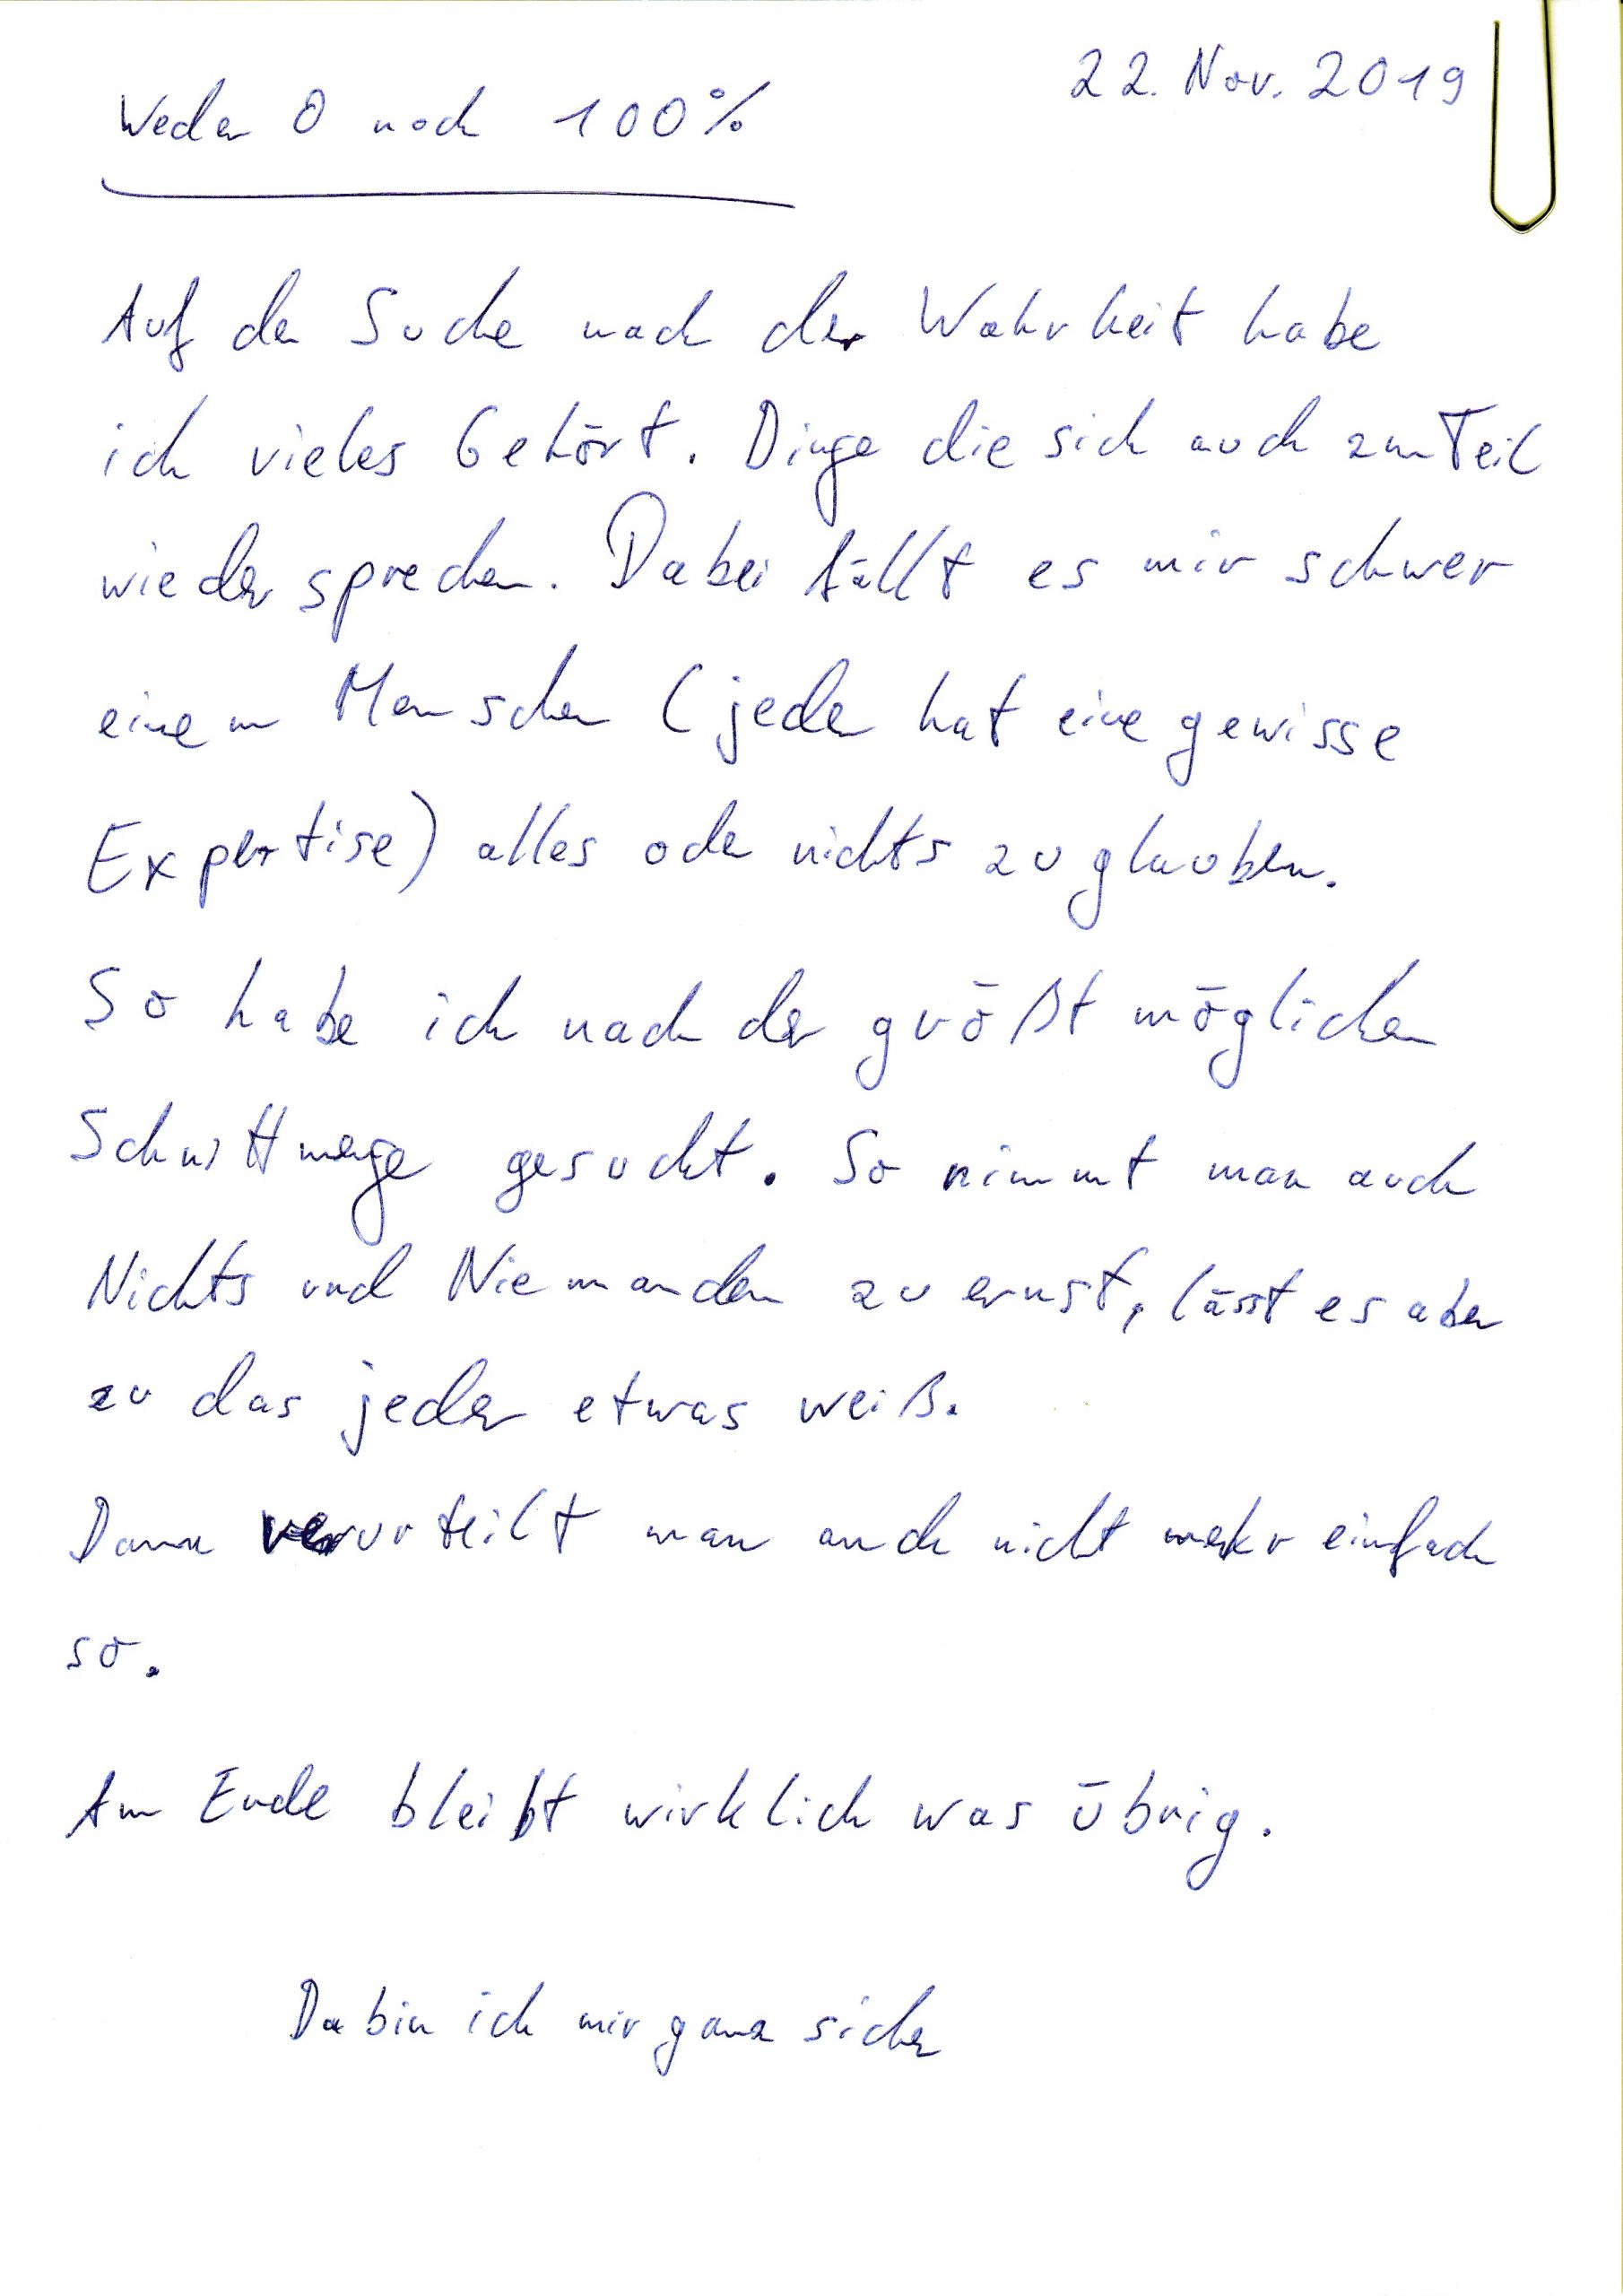 22. Nov. 2019
Weder 0 noch 100%
Auf der Suche nach der Wahrheit habe
ich vieles Gehört. Dinge die sich auch zum Teil
wieder sprechen. Dabei fällt es mir schwer
einem Menschen (jeder hat eine gewisse
Expertise) alles oder nichts zu glauben.
So habe ich nach der größt möglichen
Schnittmenge gesucht. So nimmt man auch
Nichts und Niemanden zu ernst, lässt es aber
zu das jeder etwas weiß.
Dann verurteilt man auch nicht mehr einfach
so.
Am Ende bleibt wirklich was übrig.
Da bin ich mir ganz sicher